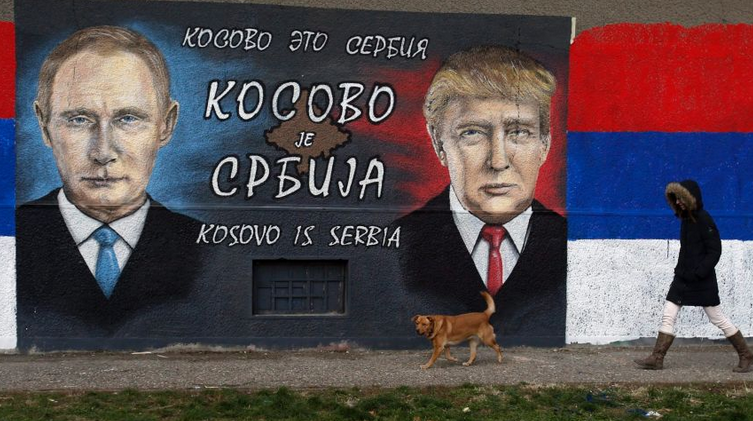 КОСОВО ЭТО СЕРБИЯ
КОСОВО
ЈЕ
СРБИЈА
KOSOVO IS SERBIA